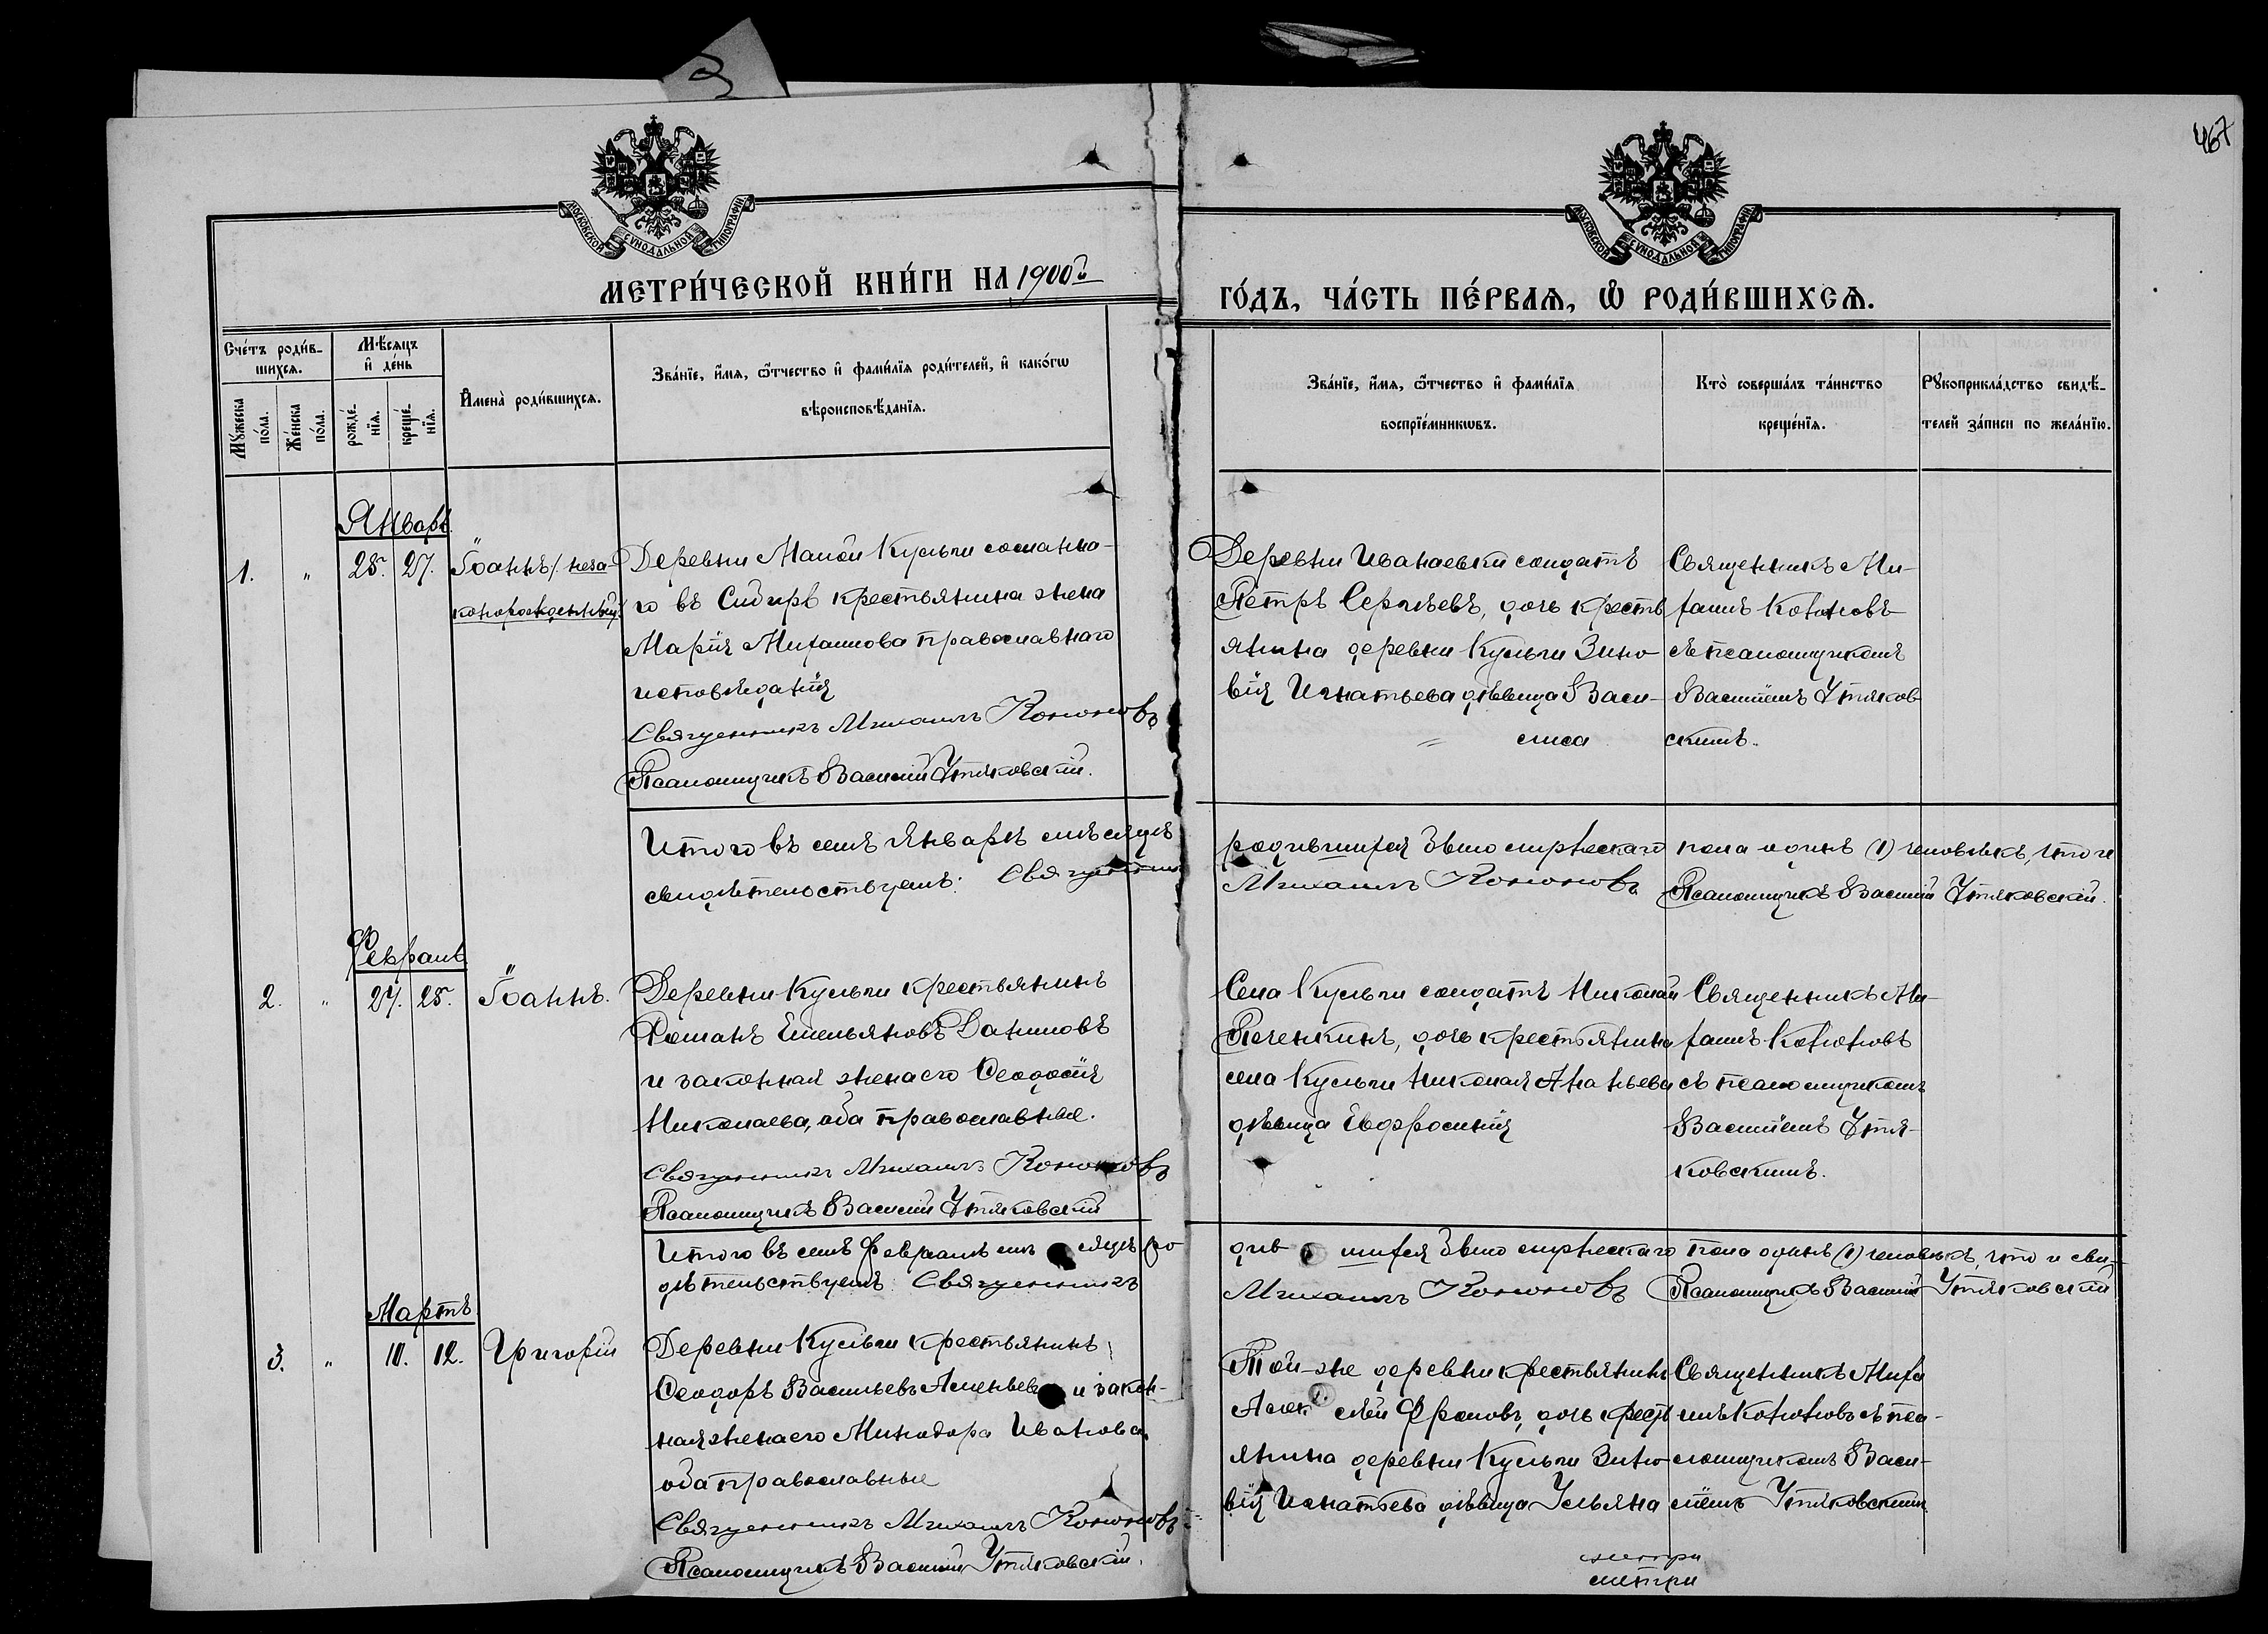 467
МОСКОВСКОЙ СѴНОДАЛЬНОЙ ТИПОГРАФІИ
МОСКОВСКОЙ СѴНОДАЛЬНОЙ ТИПОГРАФІИ
МЕТРИ́ЧЕСКОЙ КНИ́ГИ НА 1900й
ГО́ДЪ, ЧА́СТЬ ПЕ́РВАѦ, Ѽ РОДИ́ВШИХСѦ.
Сче́тъ роди́в-
шихсѧ.
Мꙋ́жеска
по́ла.
Же́нска
по́ла.
Мѣ́сѧцъ
и҆ де́нь
рожде́-
нїѧ.
креще́-
нїѧ.
И҆мена̀ роди́вшихсѧ.
Зва́нїе, и҆́мѧ, ѻ҆́тчество и҆ фами́лїѧ роди́телей, и҆ како́гѡ
вѣроисповѣ́данїѧ.
Зва́нїе, и҆́мѧ, ѻ҆́тчество и҆ фами́лїѧ
воспрїе́мникѡвъ.
Кто̀ соверша́лъ та́инство
креще́нїѧ.
Рꙋкоприкла́дство свидѣ́-
телей за́писи по жела́нїю.
Январь
1. " 25. 27.
Іоаннъ /неза-
конорожденный/
Деревни Малой Кульги сосланна-
го въ Сибирь крестьянина жена
Марія Михаилова православнаго
исповѣданія
Священникъ Михаилъ Кононовъ
Псаломщикъ Василій Утяковскій.
Деревни Иванаевки солдатъ
Петръ Сергѣевъ, дочь кресть
янина деревни Кульги Зино
вія Игнатьева дѣвица Васи-
лиса
Священникъ Ми-
хаилъ Кононовъ
съ псаломщикомъ
Василіемъ Утяков
скимъ.
Итого въ семъ Январѣ мѣсяцѣ родившихся было мужескаго пола одинъ (1) человѣкъ, что и
свидѣтельствуемъ: Священникъ Михаилъ Кононовъ Псаломщикъ Василій Утяковскій.
Февраль
2. " 24. 25.
Іоаннъ.
Деревни Кульги крестьянинъ
Романъ Емельяновъ Даниловъ
и законная жена его Ѳеодосія
Николаева, оба православные.
Священникъ Михаилъ Кононовъ
Псаломщикъ Василій Утяковскій
Села Кульги солдатъ Николай
Печенкинъ, дочь крестьянина
села Кульги Николая Ананьева
дѣвица Евфросинія
Священникъ Ми-
хаилъ Кононовъ
съ псаломщикомъ
Василіемъ Утя-
ковскимъ.
Итого въ семъ Февралѣ мѣсяцѣ ро дившихся было мужескаго пола одинъ (1) человѣкъ, что и сви-
дѣтельствуемъ Священникъ Михаилъ Кононовъ Псаломщикъ Василій Утяковскій
Мартъ
3. " 10. 12.
Григорій
Деревни Кульги крестьянинъ
Ѳеодоръ Васильевъ и закон-
ная жена его Минодора Иванова.
оба православные
Священникъ Михаилъ Кононовъ
Псаломщикъ Василій Утяковскій.
Той-же деревни крестьянинъ
Алексѣй Фроловъ, дочь крест
янина деревни Кульги Зино
вія Игнатьева дѣвица Ульяна
Священникъ Миха
илъ Кононовъ съ пса-
ломщикомъ Васи-
ліемъ Утяковским
метри
метри